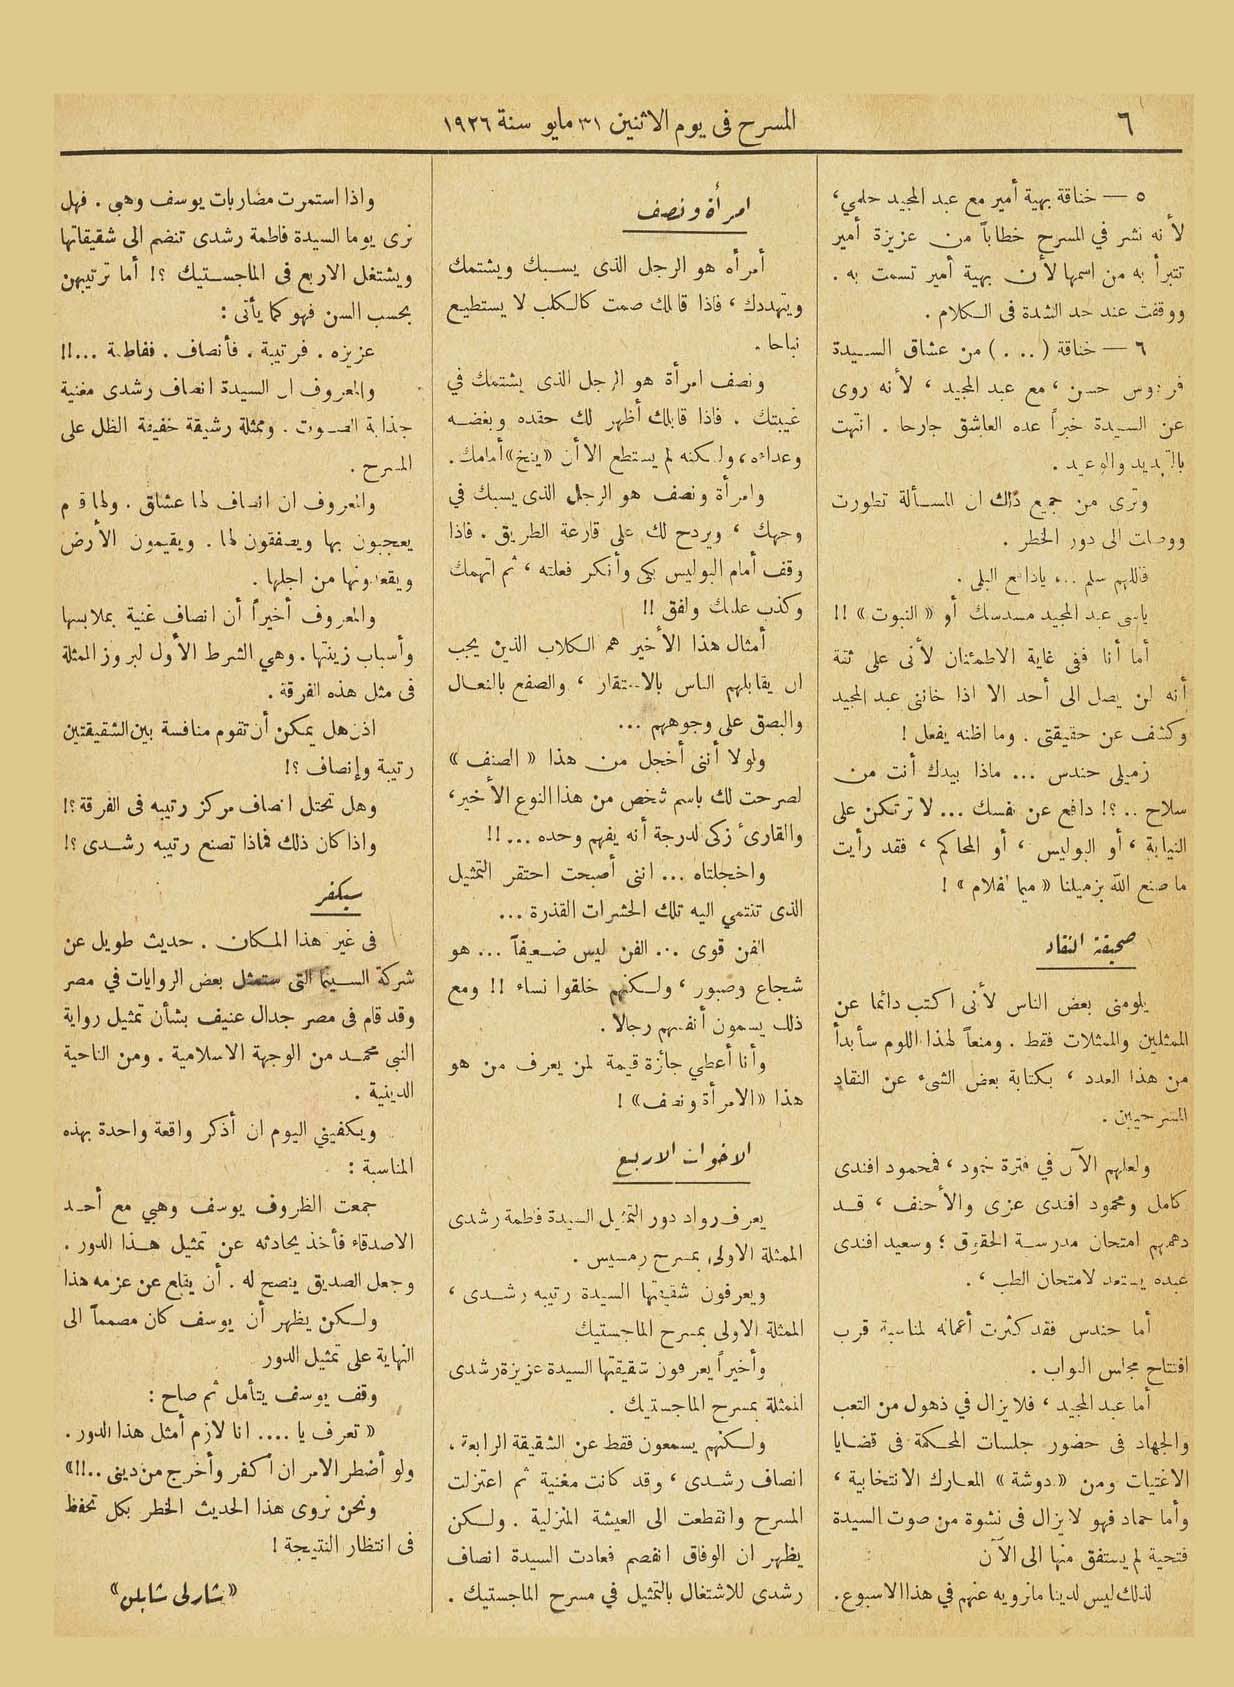 ٦
المسرح فى يوم الاثنين ٣١ مايو سنة ١٩٢٦
٥ — خناقة بهية أمير مع عبد المجيد حلمي،
لأنه نشر في المسرح خطاباً من عزيزة أمير
تتبرأ به من اسمها لأن بهية أمير تسمت به .
ووقفت عند حد الشدة فى الكلام .
٦ — خناقة ( . . . ) من عشاق السيدة
فردوس حسن ، مع عبد المجيد ، لأنه روى
عن السيدة خبراً عده العاشق جارحا . انتهت
بالتهديد والوعيد .
وترى من جميع ذلك ان المسألة تطورت
ووصلت الى دور الخطر .
فاللهم سلم ... يادافع البلى .
ياسى عبد المجيد مسدسك أو « النبوت » !!
أما أنا ففى غاية الاطمئنان لأنى على ثقة
أنه لن يصل الى أحد الا اذا خاننى عبد المجيد
وكشف عن حقيقتى . وما اظنه يفعل !
زميلى حندس ... ماذا بيدك أنت من
سلاح .. ؟! دافع عن نفسك ... لا ترتكن على
النيابة ، أو البوليس ، أو المحاكم ، فقد رأيت
ما صنع الله بزميلنا « ميا افلام » !
صحيفة النقاد
يلومنى بعض الناس لأنى اكتب دائما عن
الممثلين والممثلات فقط . ومنعاً لهذا اللوم سأبدأ
من هذا العدد ، بكتابة بعض الشىء عن النقاد
المسرحيين .
ولعلهم الآن في فترة خمود ، فمحمود افندى
كامل ومحمود افندى عزى والأحنف ، قد
دهمهم امتحان مدرسة الحقوق ؛ وسعيد افندى
عبده يستعد لامتحان الطب ، .
أما حندس فقد كثرت أعماله لمناسبة قرب
افتتاح مجلس النواب .
أما عبد المجيد ، فلا يزال في ذهول من التعب
والجهاد فى حضور جلسات المحكمة فى قضايا
الاغتيات ومن « دوشة » المعارك الانتخابية ،
وأما حماد فهو لا يزال فى نشوة من صوت السيدة
فتحية لم يستفق منها الى الآن
لذلك ليس لدينا ما نرويه عنهم في هذا الاسبوع .
امرأة ونصف
أمرأه هو الرجل الذى يسبك ويشتمك
ويتهددك ، فاذا قابلك صمت كالكلب لا يستطيع
نباحا .
ونصف امرأة هو الرجل الذى يشتمك في
غيبتك . فاذا قابلك أظهر لك حقده وبغضه
وعداءه، ولكنه لم يستطع الا أن «ينخ» أمامك .
وامرأة ونصف هو الرجل الذى يسبك في
وجهك ، ويردح لك على قارعة الطريق . فاذا
وقف أمام البوليس بكى وأنكر فعلته ، ثم اتهمك
وكذب عليك ولفق !!
أمثال هذا الأخير هم الكلاب الذين يجب
ان يقابلهم الناس بالاحتقار ، والصفع بالنعال
والبصق على وجوههم ...
ولولا أننى أخجل من هذا « الصنف »
لصرحت لك باسم شخص من هذا النوع الأخير ،
والقارئ زكى لدرجة أنه يفهم وحده ... !!
واخجلتاه ... اننى أصبحت احتقر التمثيل
الذى تنتمي اليه تلك الحشرات القذرة ...
الفن قوى ... الفن ليس ضعيفاً ... هو
شجاع وصبور ، ولكنهم خلقوا نساء !! ومع
ذلك يسمون أنفسهم رجالا .
وأنا أعطي جائزة قيمة لمن يعرف من هو
هذا « الامرأة ونصف » !
الاخوات الاربع
يعرف رواد دور التمثيل السيدة فاطمة رشدى
الممثلة الاولى بمسرح رمسيس .
ويعرفون شقيقتها السيدة رتيبه رشدى ،
الممثلة الاولى بمسرح الماجستيك
وأخيراً يعرفون شقيقتها السيدة عزيزة رشدى
الممثلة بمسرح الماجستيك .
ولكنهم يسمعون فقط عن الشقيقة الرابعة ،
انصاف رشدى ، وقد كانت مغنية ثم اعتزلت
المسرح وانقطعت الى العيشة المنزلية . ولكن
يظهر ان الوفاق انفصم فعادت السيدة انصاف
رشدى للاشتغال بالتمثيل في مسرح الماجستيك .
واذا استمرت مضاربات يوسف وهبى . فهل
نرى يوما السيدة فاطمة رشدى تنضم الى شقيقاتها
ويشتغل الاربع فى الماجستيك ؟! أما ترتيبهن
بحسب السن فهو كما يأتى :
عزيزه . فرتيبة . فأنصاف . ففاطمة ...!!
والمعروف ان السيدة انصاف رشدى مغنية
جذابة الصوت . وممثلة رشيقة خفيفة الظل على
المسرح .
والمعروف ان انصاف لها عشاق . ولها قوم
يعجبون بها ويصفقون لها . ويقيمون الأرض
ويقعدونها من اجلها .
والمعروف أخيراً أن انصاف غنية بملابسها
وأسباب زينتها . وهي الشرط الأول لبروز الممثلة
فى مثل هذه الفرقة .
اذن هل يمكن أن تقوم منافسة بين الشقيقتين
رتيبة وإنصاف ؟!
وهل تحتل انصاف مركز رتيبه فى الفرقة ؟!
واذا كان ذلك فماذا تصنع رتيبه رشدى ؟!
سيكفر
فى غير هذا المكان . حديث طويل عن
شركة السينما التى ستمثل بعض الروايات في مصر
وقد قام فى مصر جدال عنيف بشأن تمثيل رواية
النبى محمد من الوجهة الاسلامية . ومن الناحية
الدينية .
ويكفيني اليوم ان أذكر واقعة واحدة بهذه
المناسبة :
جمعت الظروف يوسف وهبي مع أحد
الاصدقاء فأخذ يحادثه عن تمثيل هذا الدور .
وجعل الصديق ينصح له . أن يقلع عن عزمه هذا
ولكن يظهر أن يوسف كان مصمماً الى
النهاية على تمثيل الدور
وقف يوسف يتأمل ثم صاح :
« تعرف يا .... انا لازم أمثل هذا الدور .
ولو أضطر الامر ان أكفر وأخرج من دينى ..!!»
ونحن نروى هذا الحديث الخطر بكل تحفظ
فى انتظار النتيجة !
«شارلى شابلن»